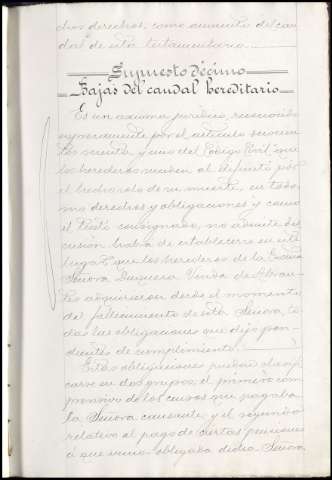 chos derechos, como aumento del cau-
dal de esta testamentaría.
Supuesto décimo
Bajas del caudal hereditario
Es un axioma jurídico reconocido
expresamente por el artículo seiscien-
tos sesenta y uno del Código Civil que
los herederos suceden al difunto por
el hecho solo de su muerte, en todos
sus derechos y obligaciones y como
el texto consignado, no admite dis-
cusión habrá de establecerse en este
lugar, que los herederos de la Excma.
Señora Duquesa Viuda de
adquirieron desde el momento
del fallecimiento de esta Señora, to-
das las obligaciones que dejó pen-
dientes de cumplimiento.
Estas obligaciones pueden clasifi-
carse en dos grupos: el primero com-
prensivo de los censos que pagaba
la Señora causante y el segundo
relativo al pago de ciertas pensiones
á que venía obligada dicha Señora